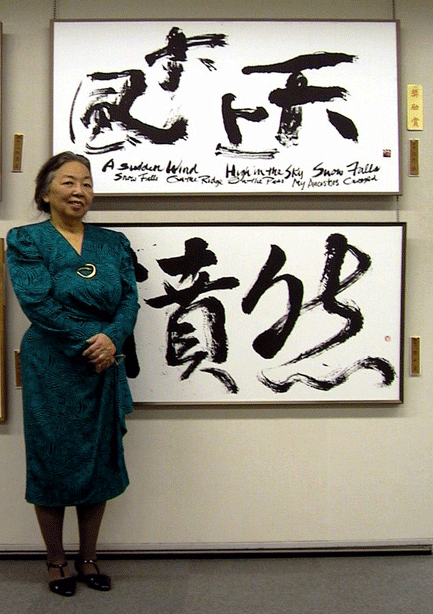 天上大風
A Sudden Wind High in the Sky Snow Falls
Snow Falls On the Ridge On the Pass My Ancestors Crossed
奨励賞
然